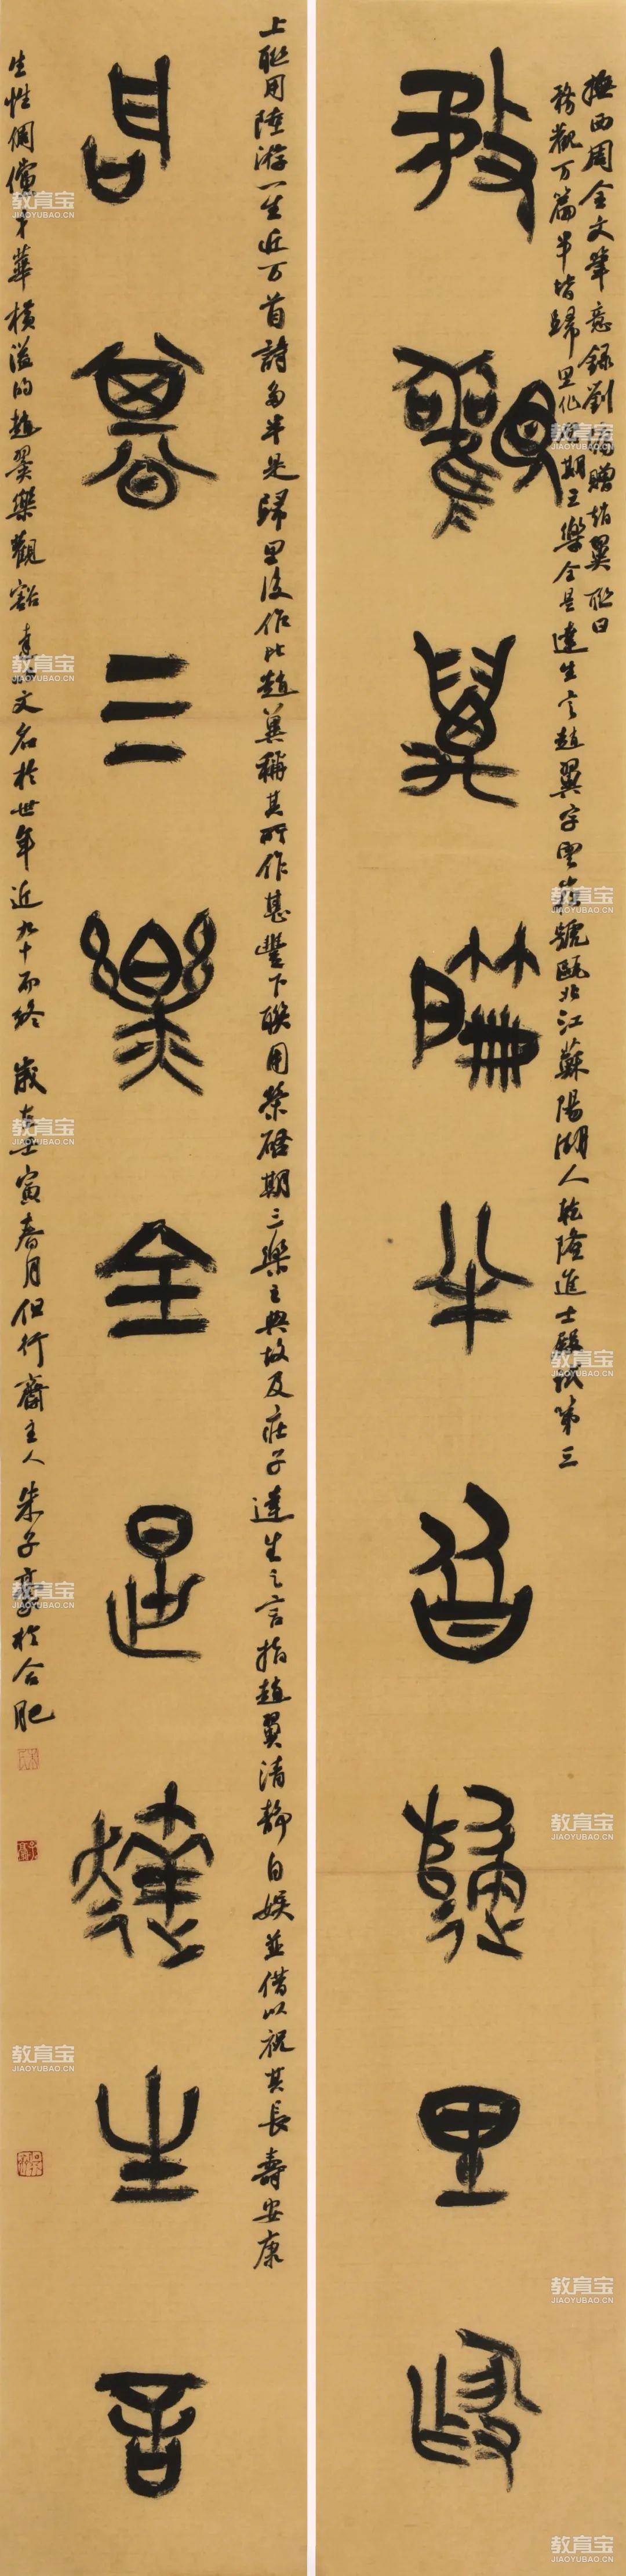 撫西周金文筆意錄劉墉贈趙翼聯曰
務觀万篇半皆歸里作啟期三樂全是達生言趙翼字雲崧號甌北江蘇陽湖人乾隆進士殿試第三
務觀萬篇半皆歸里作
上聯用陸游一生近万首詩多半是歸里後作比趙翼稱其所作甚豐下聯用榮啟期三樂之典故及莊子達生之言指趙翼清靜自娛並借以祝其長壽安康
启期三樂全是達生言
生性倜儻才華橫溢的趙翼樂觀豁達文名於世年近九十而終 歲在壬寅春月但行齋主人朱子豪於合肥
教育宝
JIAOYUBAO.CN